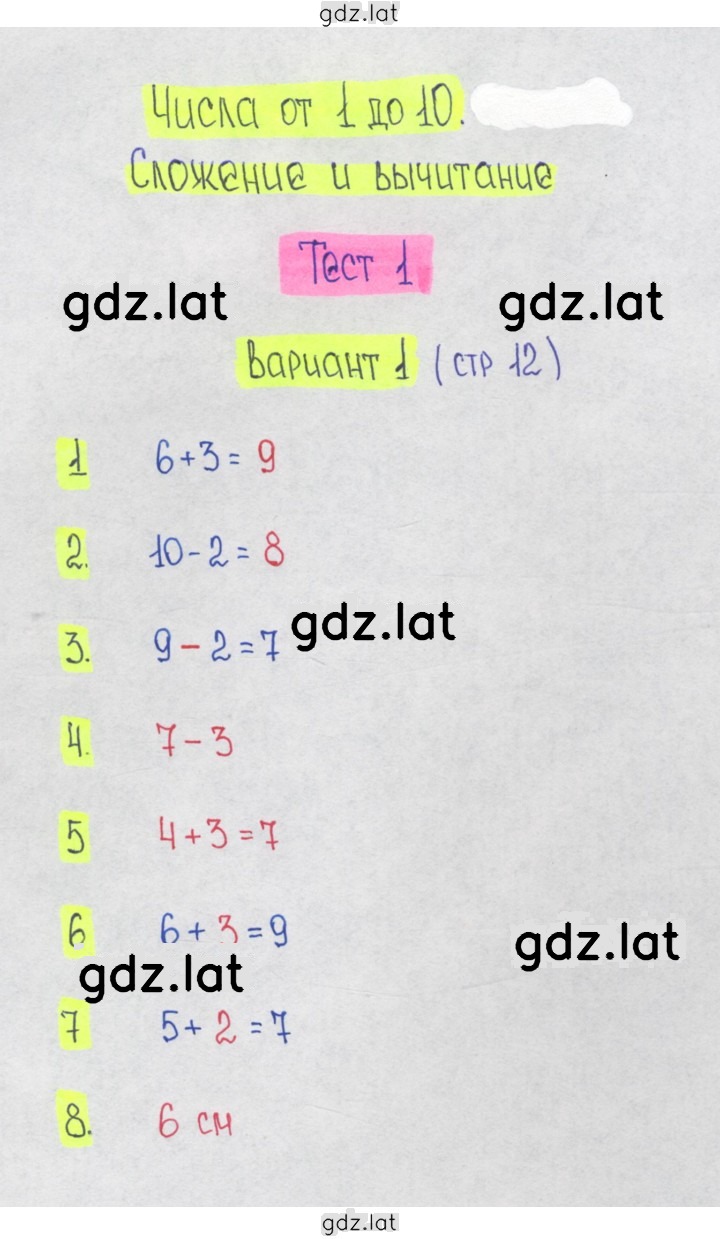 gdz.lat
Числа от 1 до 10.
Сложение и вычитание
Тест 1
gdz.lat gdz.lat
Вариант 1 (стр 12)
1 6+3= 9
2. 10-2= 8
3. 9-2=7
gdz.lat
4. 7-3
5 4+3=7
6 6+3=9
gdz.lat
gdz.lat
7 5+2=7
8. 6 см
gdz.lat